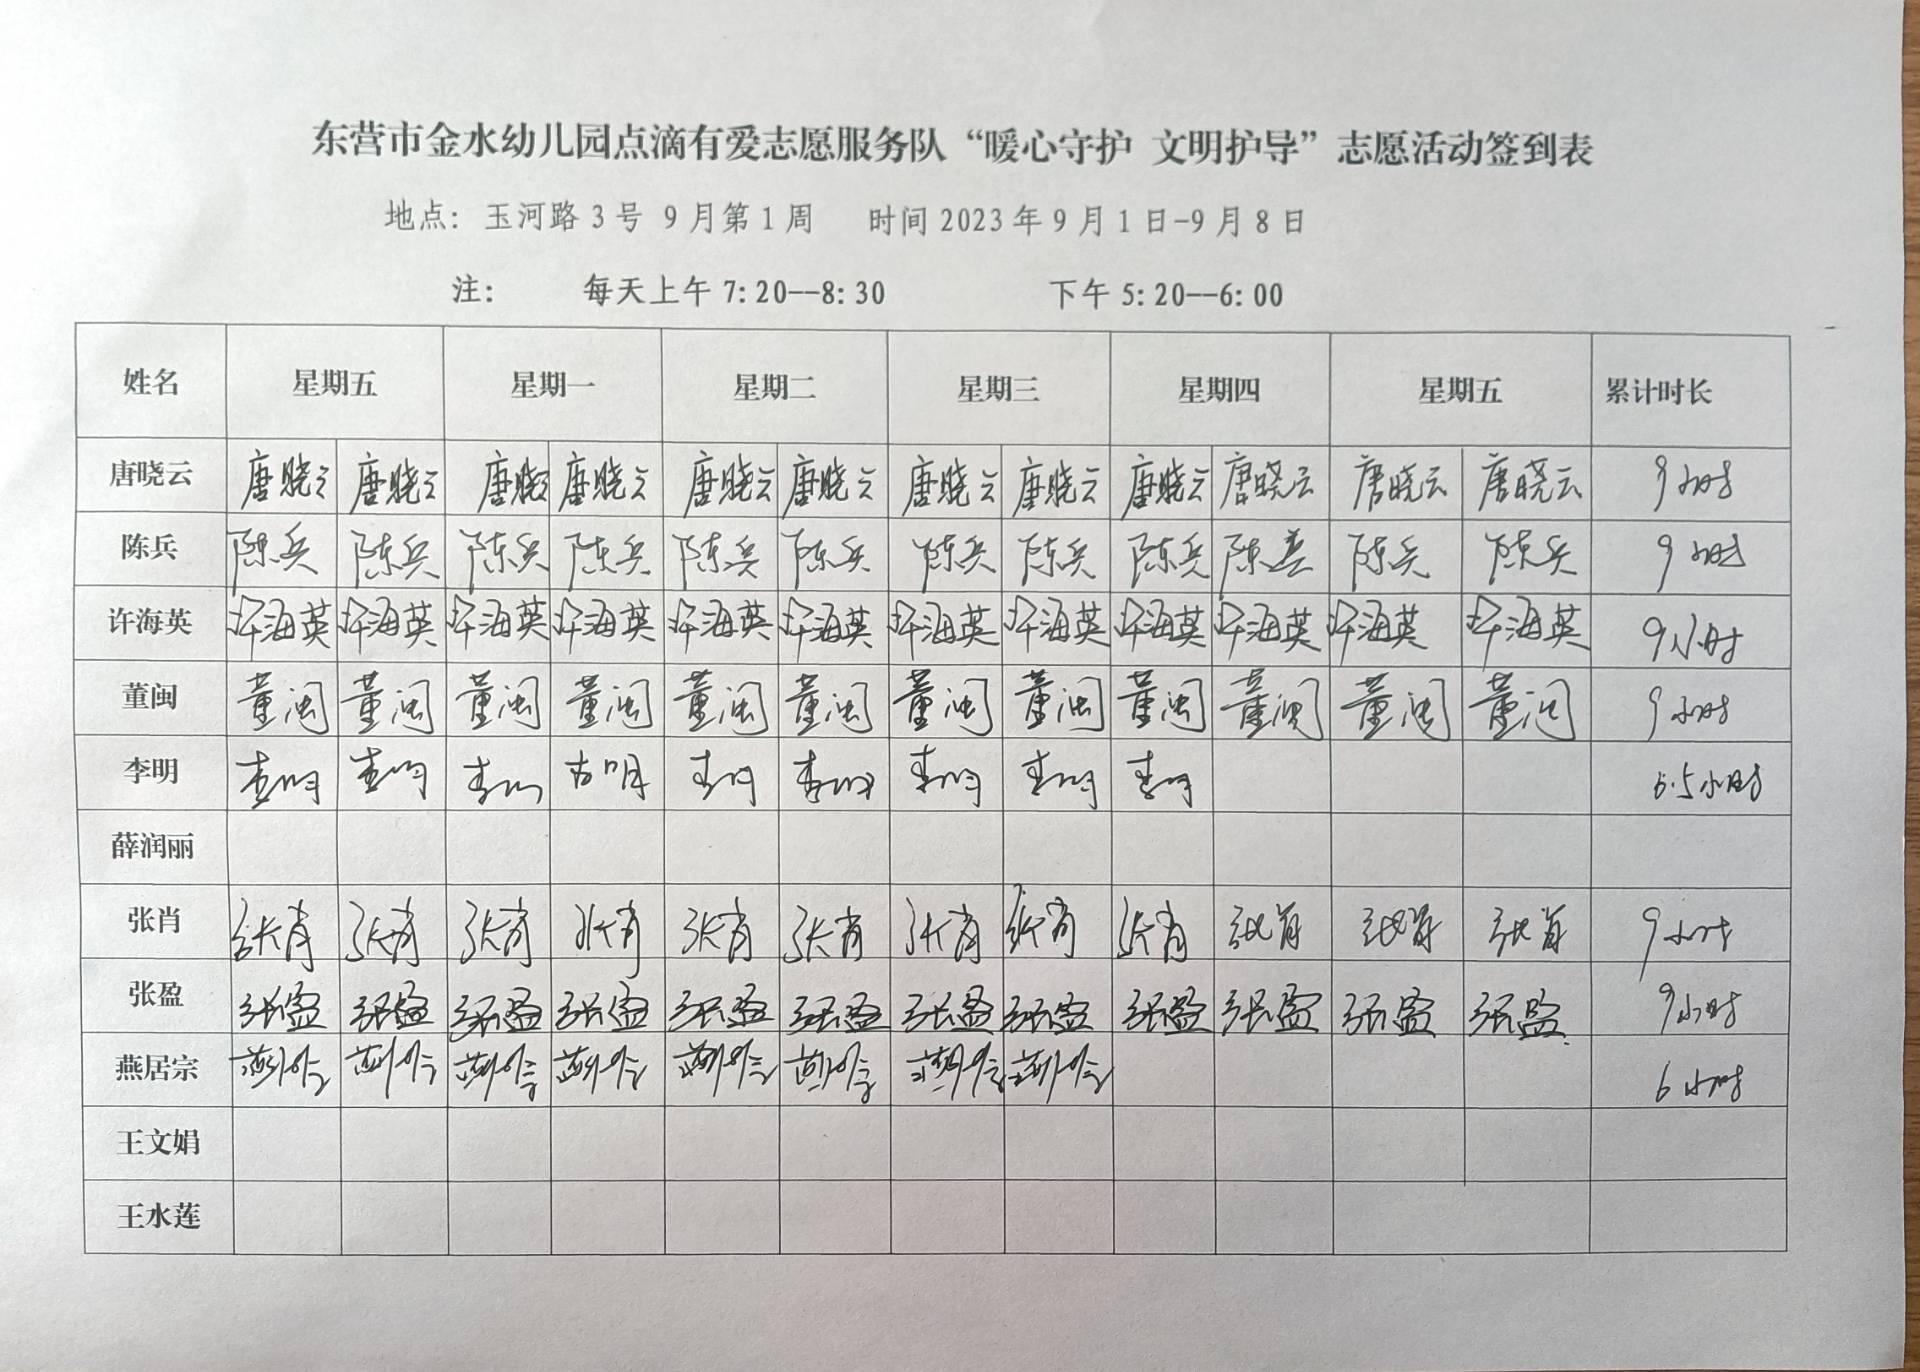 东营市金水幼儿园点滴有爱志愿服务队“暖心守护 文明护导”志愿活动签到表
地点：玉河路3号 9月第1周 时间2023年9月1日-9月8日
注： 每天上午7:20--8:30 下午5:20--6:00
姓名 星期五 星期一 星期二 星期三 星期四 星期五 累计时长
唐晓云 唐晓云 唐晓云 唐晓云 唐晓云 唐晓云 唐晓云 唐晓云 唐晓云 唐晓云 唐晓云 唐晓云 唐晓云 9小时
陈兵 陈兵 陈兵 陈兵 陈兵 陈兵 陈兵 陈兵 陈兵 陈兵 陈兵 陈兵 陈兵 9小时
许海英 许海英 许海英 许海英 许海英 许海英 许海英 许海英 许海英 许海英 许海英 许海英 许海英 9小时
董闽 董闽 董闽 董闽 董闽 董闽 董闽 董闽 董闽 董闽 董闽 董闽 董闽 9小时
李明 李明 李明 李明 李明 李明 李明 李明 李明 李明 6.5小时
薛润丽
张肖 张肖 张肖 张肖 张肖 张肖 张肖 张肖 张肖 张肖 张肖 张肖 张肖 9小时
张盈 张盈 张盈 张盈 张盈 张盈 张盈 张盈 张盈 张盈 张盈 张盈 张盈 9小时
燕居宗 燕居宗 燕居宗 燕居宗 燕居宗 燕居宗 燕居宗 燕居宗 燕居宗 6小时
王文娟
王水莲